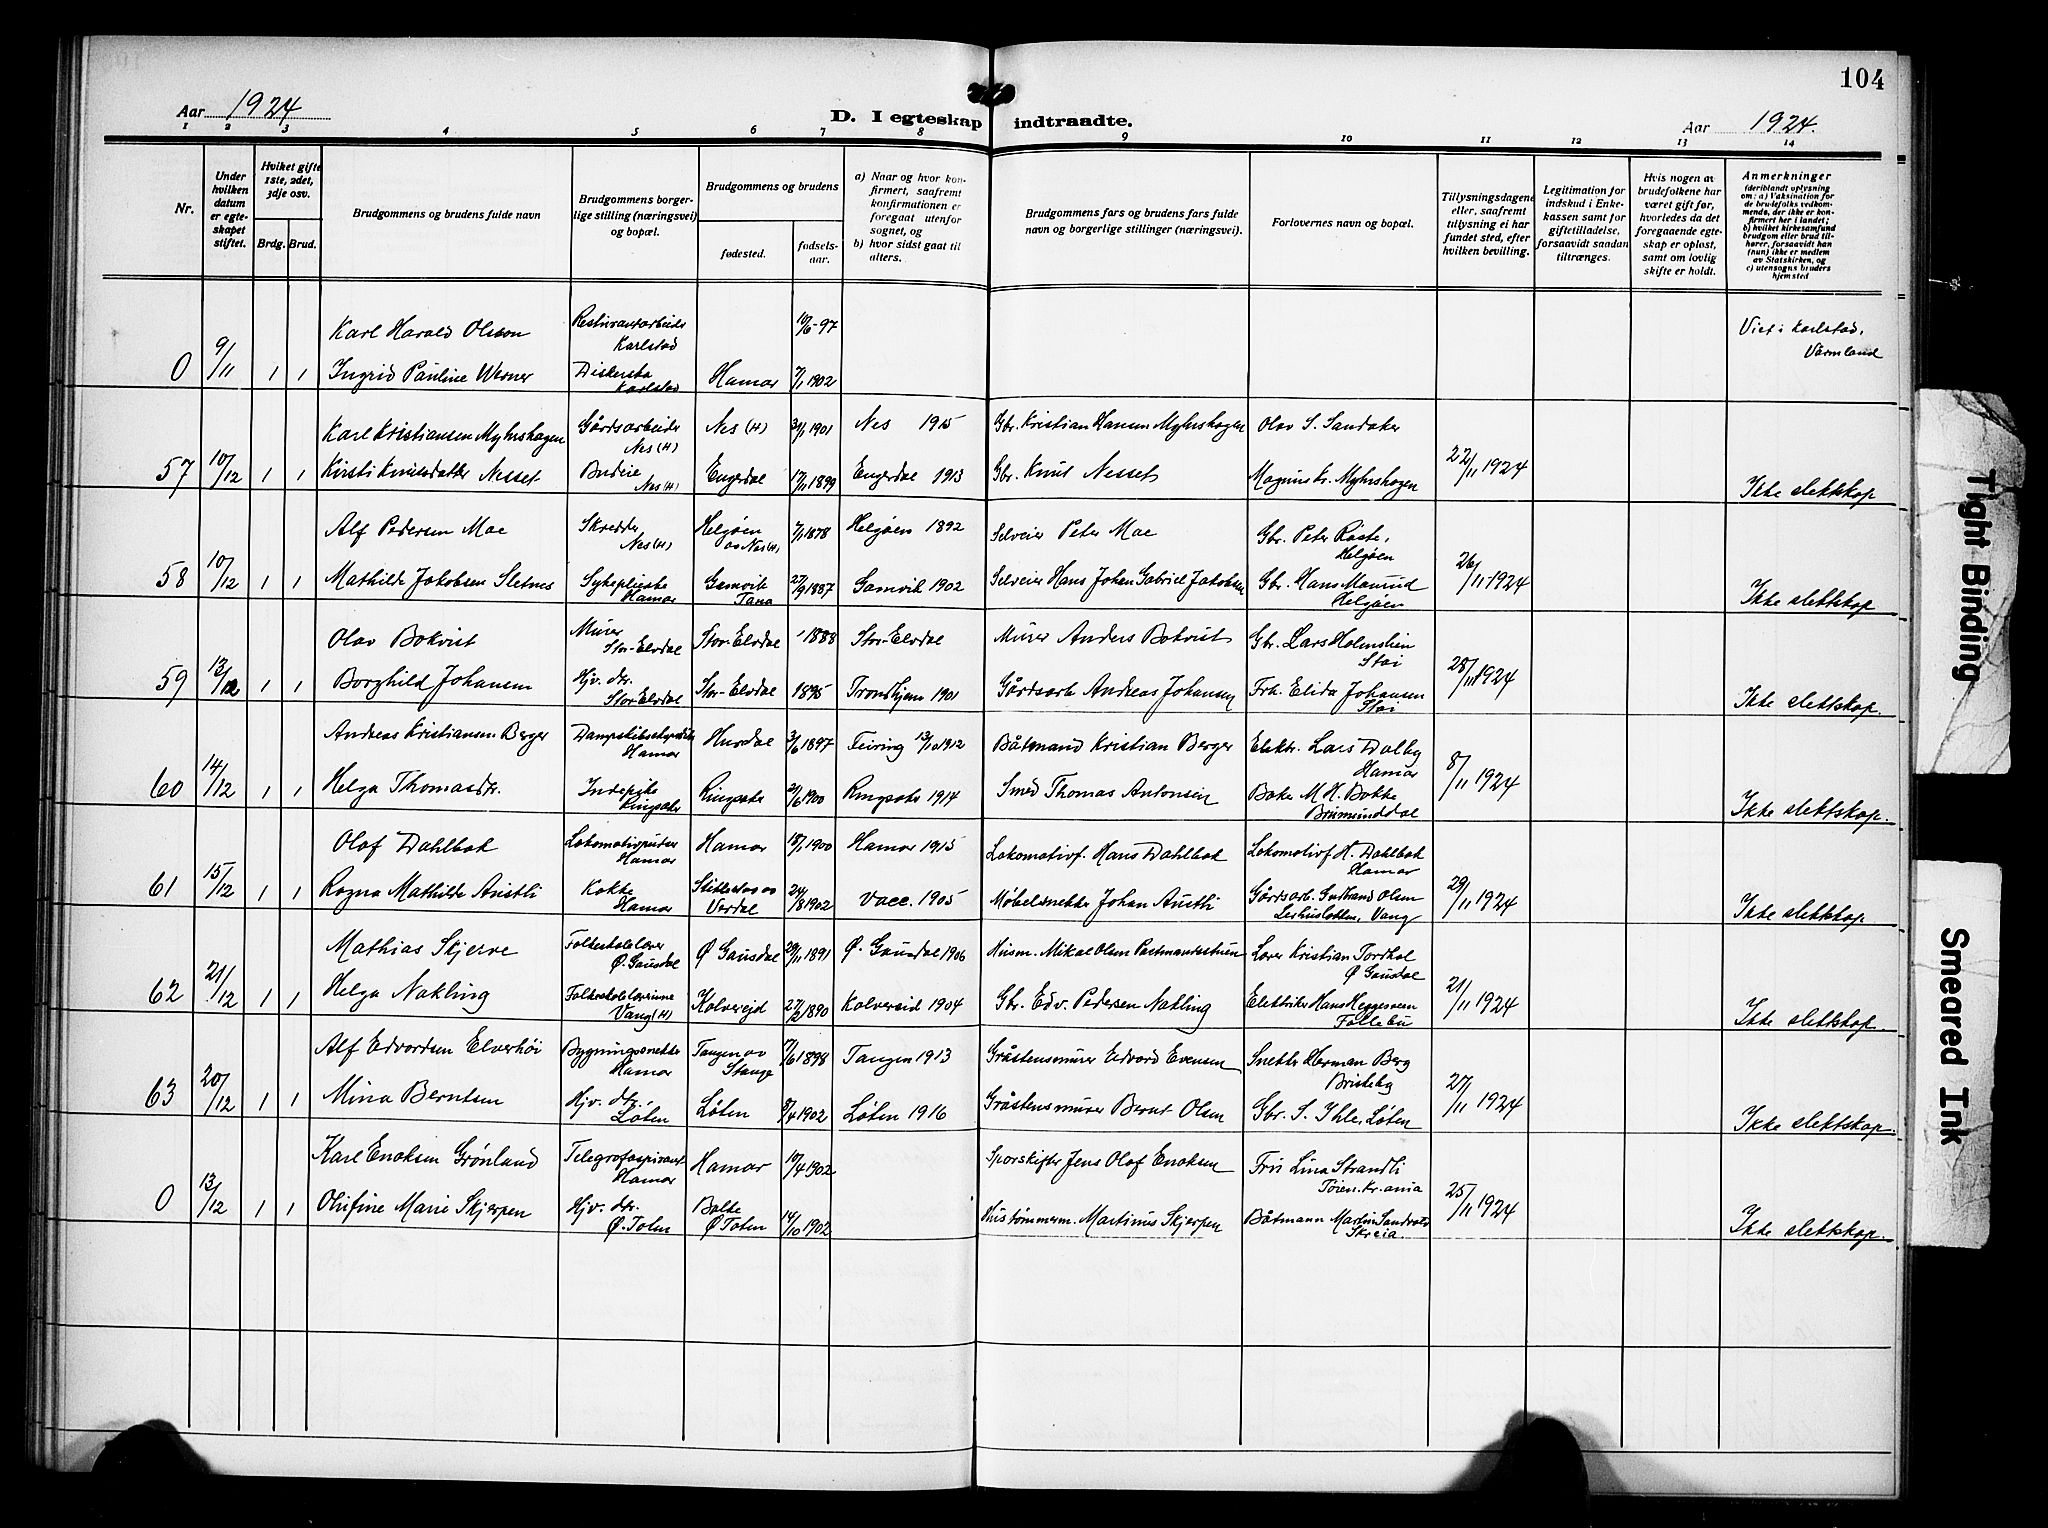 104
Aar 1924
D. I egteskap indtraadte.
Aar 1924.
1 2 3 4 5 6 7 8 9 10 11 12 13 14
Nr.
Under hvilken datum er egteskapet stiftet.
Hvilket gifte 1ste, 2det, 3dje osv.
Brdg. Brud.
Brudgommens og brudens fulde navn
Brudgommens borgerlige stilling (næringsvei) og bopæl.
Brudgommens og brudens
fødested.
fødselsaar.
a) Naar og hvor konfirmert, saafremt konfirmationen er foregaat utenfor sognet, og
b) hvor sidst gaat til alters.
Brudgommens fars og brudens fars fulde navn og borgerlige stillinger (næringsvei).
Forlovernes navn og bopæl.
Tillysningsdagene eller, saafremt tillysning ei har fundet sted, efter hvilken bevilling.
Legitimation for indskud i Enkekassen samt for giftetilladelse, forsaavidt saadan tiltrænges.
Hvis nogen av brudefolkene har været gift før, hvorledes da det foregaaende egteskap er opløst, samt om lovlig skifte er holdt.
Anmerkninger (deriblandt oplysning om: a) Vaksination for de brudefolks vedkommende, der ikke er konfirmert her i landet; b) hvilket kirkesamfund brudgom eller brud tilhører, forsaavidt han (hun) ikke er medlem av Statskirken, og c) utensogns bruders hjemsted
Karl Harald Olsson Karlstad 10/6-97 Viet i Karlstad, Värmland
0 9/11 1 1 Ingrid Pauline Werner Karlstad Hamar 7/1 1902
Karl Kristiansen Myhrshagen Gårdsarbeider Nes (H) Nes (H) 31/1 1901 Nes 1915 Gbr. Kristian Hansen Myhrshagen Olav S. Sandaker
57 10/12 1 1 Kirsti Knutsdatter Nesset Budeie Nes (H) Engerdal 17/11 1899 Engerdal 1913 Gbr. Knut Nesset Magnus Kr. Myhrshagen 22/11 1924 Ikke slektskap
Alf Pedersen Moe Skredder Nes (H) Helgøen av Nes (H) 7/1 1878 Helgøen 1892 Selveier Peter Moe Gbr. Peter Røste, Helgøen
58 10/12 1 1 Mathilde Jakobsen Sletnes Sykepleierske Hamar Gamvik Tana 27/9 1887 Gamvik 1902 Selveier Hans Johan Gabriel Jakobsen Gbr. Hans Mamrud Helgøen 26/11 1924 Ikke slektskap
Olav Bokvist Murer Stor-Elvdal Stor-Elvdal 1888 Stor-Elvdal Murer Anders Bokvist Gbr. Lars Holmstien Stai
59 13/12 1 1 Borghild Johansen Hjv. dtr. Stor-Elvdal Stor-Elvdal 1895 Trondhjem 1901 Gårdsarb. Andreas Johansen Frk. Elida Johansen Stai 28/11 1924 Ikke slektskap.
Andreas Kristiansen Berger Hamar Hurdal 3/6 1897 Feiring 13/10 1912 Båtmand Kristian Berger Elektr. Lars Dalby Hamar
60 14/12 1 1 Helga Thomasdtr. Indepike Ringsaker Ringsaker 21/6 1900 Ringsaker 1914 Smed Thomas Antonsen Baker M. H. Bakke Brumunddal 8/11 1924 Ikke slektskap.
Olaf Dahlbak Lokomotivpudser Hamar Hamar 18/1 1900 Hamar 1915 Lokomotivf. Hans Dahlbak Lokomotivf H. Dahlbak Hamar
61 15/12 1 1 Ragna Mathilde Austli Kokke Hamar Stiklestad av Verdal 24/8 1902 vacc. 1905 Møbelsnekker Johan Austli Gårdsarb. Gudbrand Olsen Leshuslotten, Vang 29/11 1924 Ikke slektskap
Mathias Skjerve Folkeskolelærer Ø. Gausdal Ø Gausdal 29/11 1891 Ø. Gausdal 1906 Husm. Mikal Olsen Lærer Kristian Tordhol Ø Gausdal
62 21/12 1 1 Helga Nakling Folkeskolelærerinne Vang (H) Kolvereid 27/2 1890 Kolvereid 1904 Gbr. Edv. Pedersen Nakling Elektriker Hans Heggesveen Follebu 21/11 1924 Ikke slektskap.
Alf Edvardsen Elverhøi Bygningssnekker Hamar Tangen av Stange 7/6 1898 Tangen 1913 Gråstensmurer Edvard Evensen Snekker Herman Berg Briskeby
63 20/12 1 1 Mina Berntsen Hjv. dtr. Løten Løten 8/4 1902 Løten 1916 Gråstensmurer Bernt Olsen Gbr. S. Ihle, Løten 27/11 1924 Ikke slektskap.
Karl Enoksen Grønland Telegrafaspirant Hamar Hamar 10/4 1902 Sporskifter Jens Olaf Enoksen Fru Lina Strandli Tøien. Kr.ania
0 13/12 1 1 Olufine Marie Skjerpen Hjv. dtr. Ø. Toten Balke Ø Toten 14/10 1902 Hustømmerm. Martinus Skjerpen Båtmann Martin Sandvold Skreia. 25/11 1924 Ikke slektskap.
Tight Binding
Smeared Ink